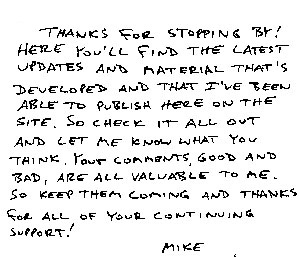 THANKS FOR STOPPING BY!
HERE YOU'LL FIND THE LATEST
UPDATES AND MATERIAL THAT'S
DEVELOPED AND THAT I'VE BEEN
ABLE TO PUBLISH HERE ON THE
SITE. SO CHECK IT ALL OUT
AND LET ME KNOW WHAT YOU
THINK. YOUR COMMENTS, GOOD AND
BAD, ARE ALL VALUABLE TO ME.
SO KEEP THEM COMING AND THANKS
FOR ALL OF YOUR CONTINUING
SUPPORT!
MIKE